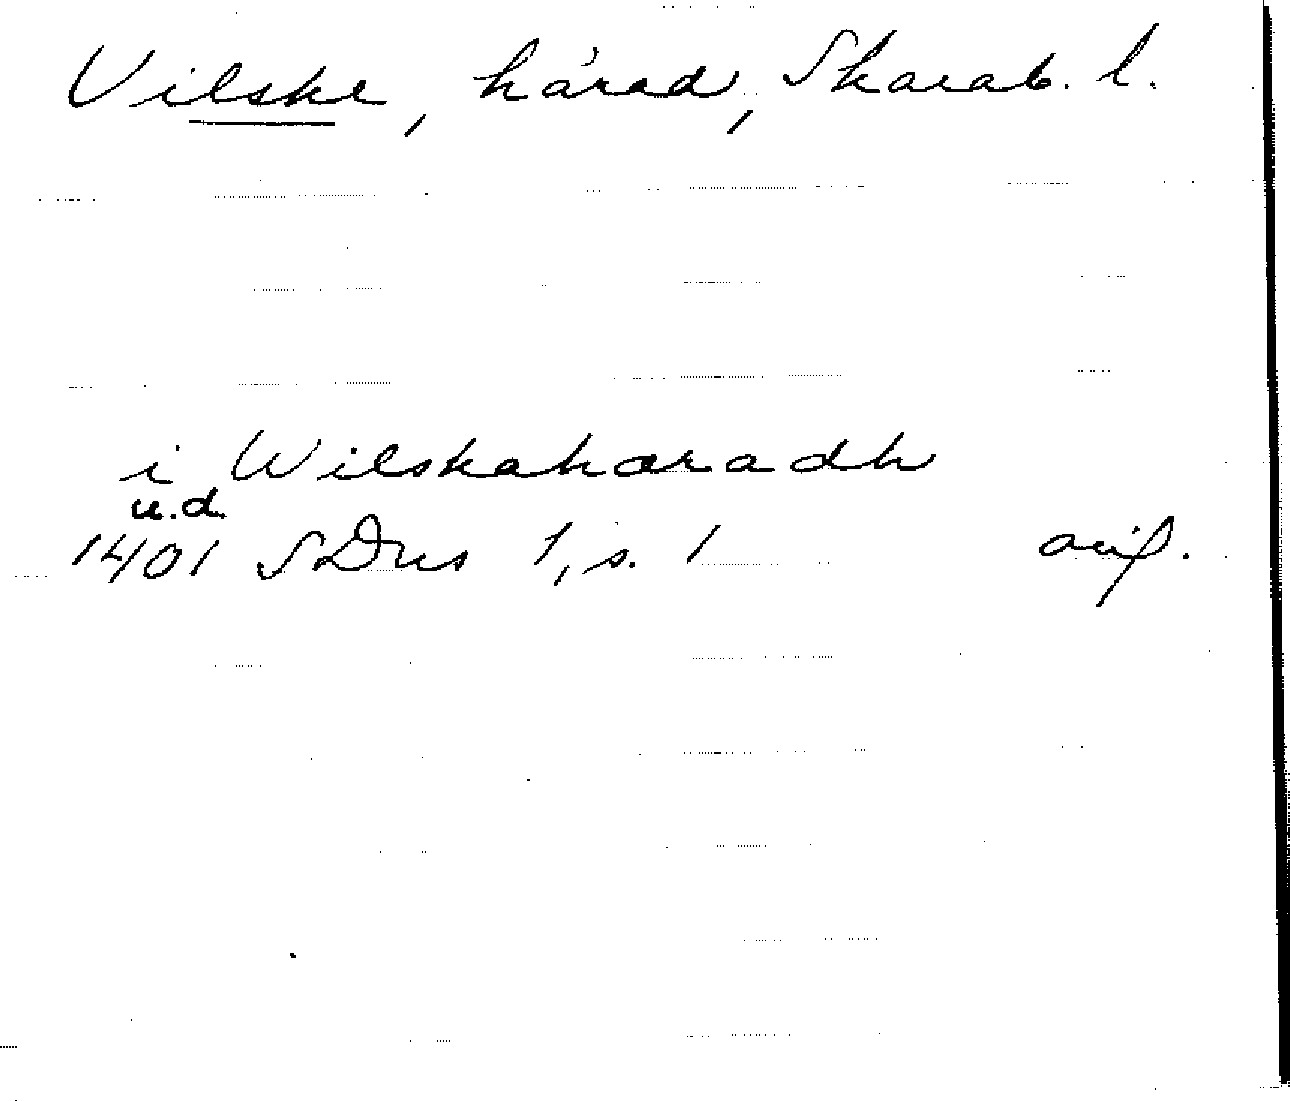 Vilske, härad, Skarab. l.
i Wilskahæradh
u.d.
1401 SDns 1, s. 1 avs.